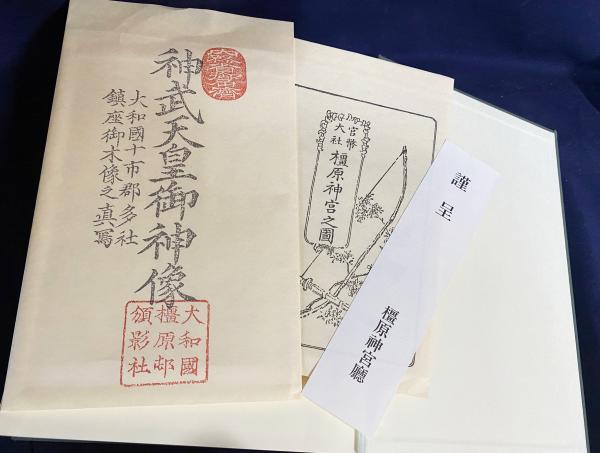 神武天皇御神像
大和國十市郡多社
鎮座御木像之眞寫
大和國
橿原邨
頒影社
官幣
大社
橿原神宮之圖
謹呈
橿原神宮廳